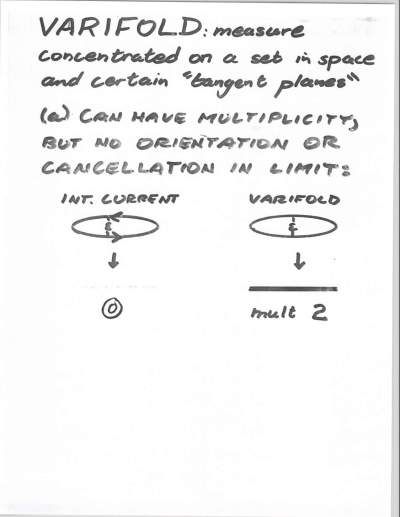 VARIFOLD: measure
concentrated on a set in space
and certain "tangent planes"
(a) CAN HAVE MULTIPLICITY,
BUT NO ORIENTATION OR
CANCELLATION IN LIMIT:
INT. CURRENT VARIFOLD
ε ε
0
mult 2